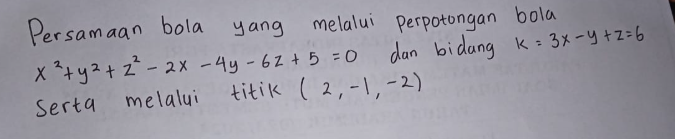 Persamaan bola yang melalui perpotongan bola
x² + y² + z² - 2x - 4y - 6z + 5 = 0 dan bidang K = 3x - y + z = 6
Serta melalui titik (2, -1, -2)